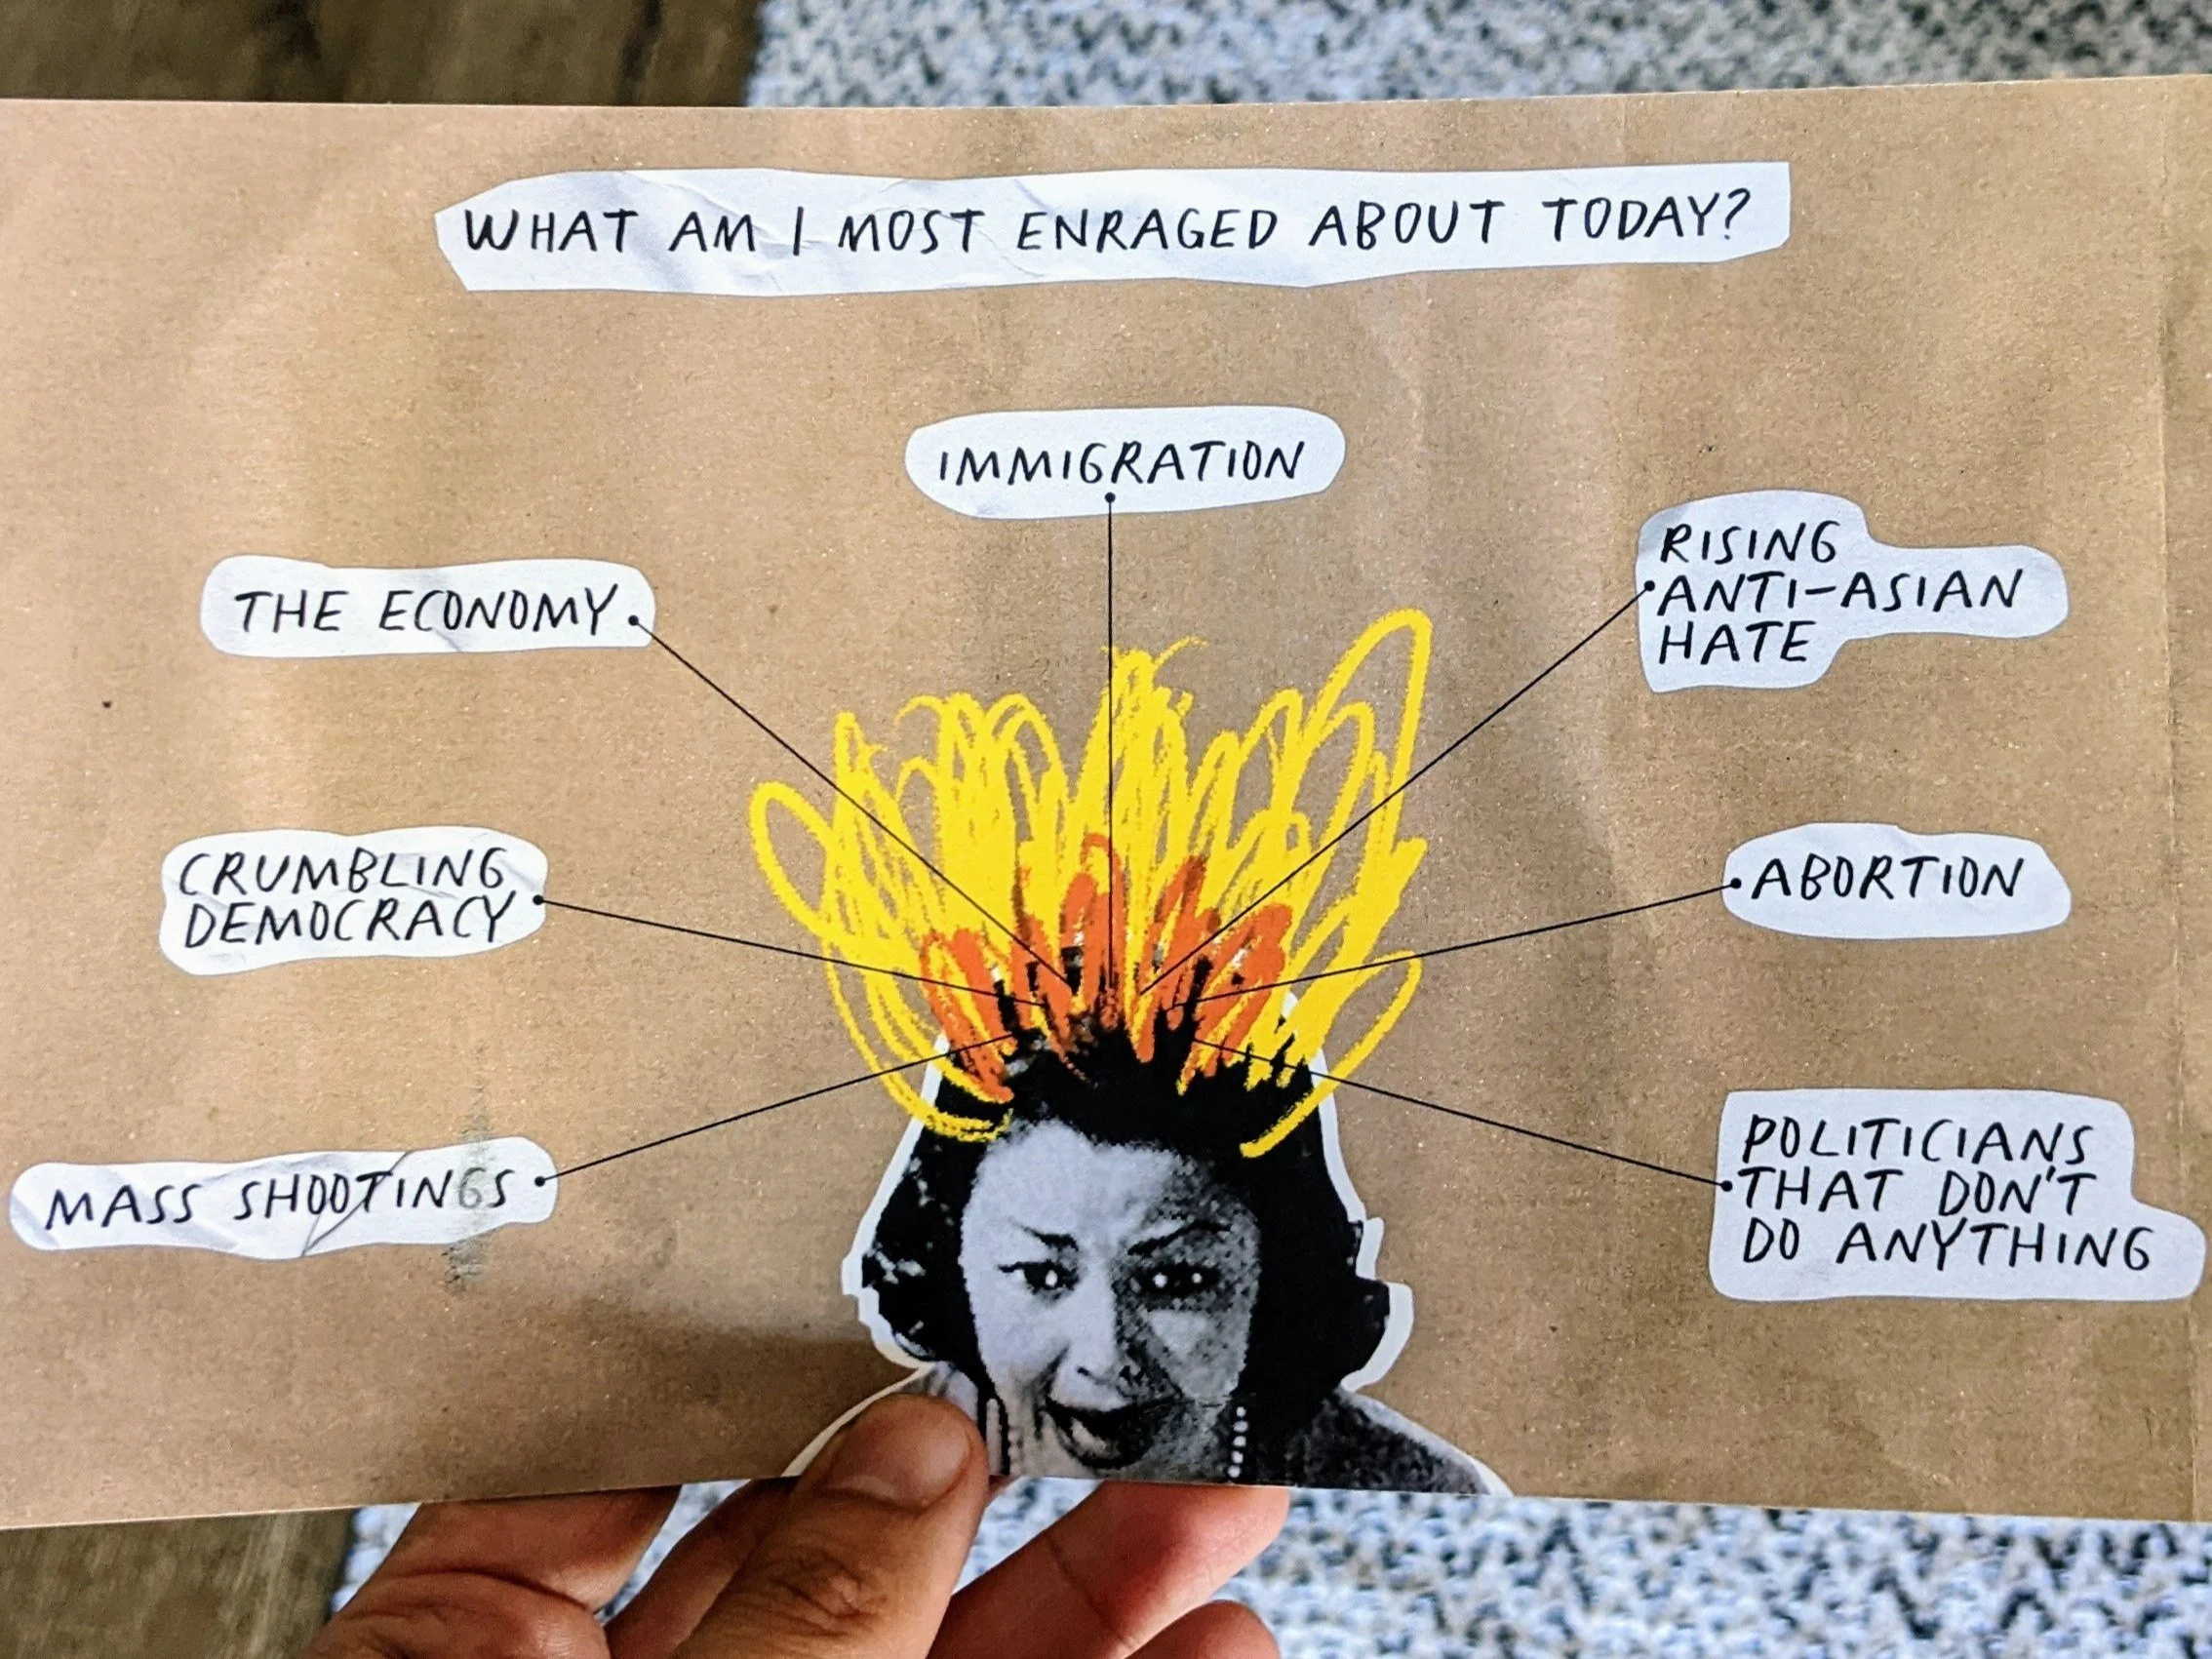 WHAT AM I MOST ENRAGED ABOUT TODAY?
IMMIGRATION
THE ECONOMY
RISING
ANTI-ASIAN
HATE
CRUMBLING
DEMOCRACY
ABORTION
MASS SHOOTINGS
POLITICIANS
THAT DON'T
DO ANYTHING